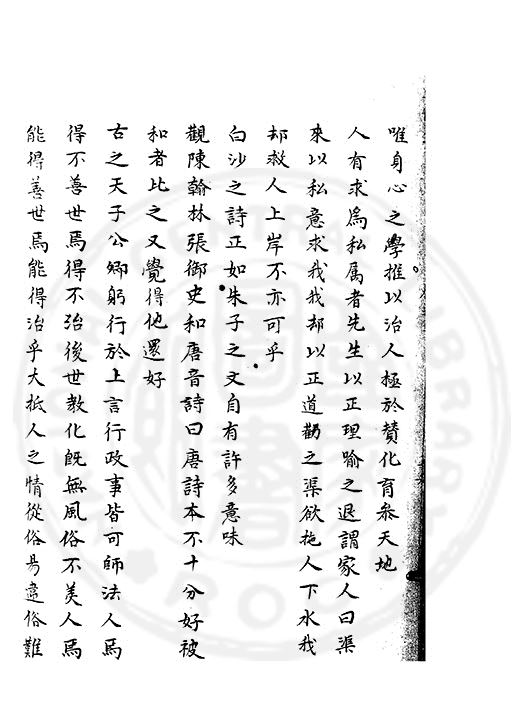 唯身心之學推以治人極於贊化育叅天地
人有求為私属者先生以正理喻之退謂家人曰渠
來以私意求我我却以正道勸之渠欲拖人下水我
却救人上岸不亦可乎
白沙之詩正如朱子之文自有許多意味
觀陳翰林張御史和唐音詩曰唐詩本不十分好被
和者比之又覺得他還好
古之天子公卿躬行於上言行政事皆可師法人焉
得不善世焉得不治後世教化既無風俗不美人焉
能得善世焉能得治乎大抵人之情從俗易違俗難